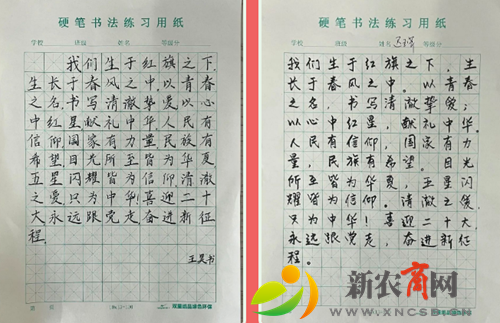 硬笔书法练习用纸
学校 班级 姓名 等级分
我们生于红旗之下,
生长于春风之中,以青春
之名,书写清澈挚爱以心
中红星献礼中华人民有
信仰国家有力量民族有
希望目光所至皆为华夏
五星闪耀皆为信仰清澈
之爱只为中华!喜迎二十
大永远跟党走奋进新征
程。
王昊书
硬笔书法练习用纸
学校 班级 姓名 等级分
我们生于红旗之下,生
长于春风之中。以青春
之名,书写清澈挚爱;
以心中红星,献礼中华。
人民有信仰,国家有力
量,民族有希望。目光
所至皆为华夏,五星闪
耀皆为信仰。清澈之爱
只为中华!喜迎二十大
永远跟党走,奋进新征
程。
新农商网
WWW.XNCSB